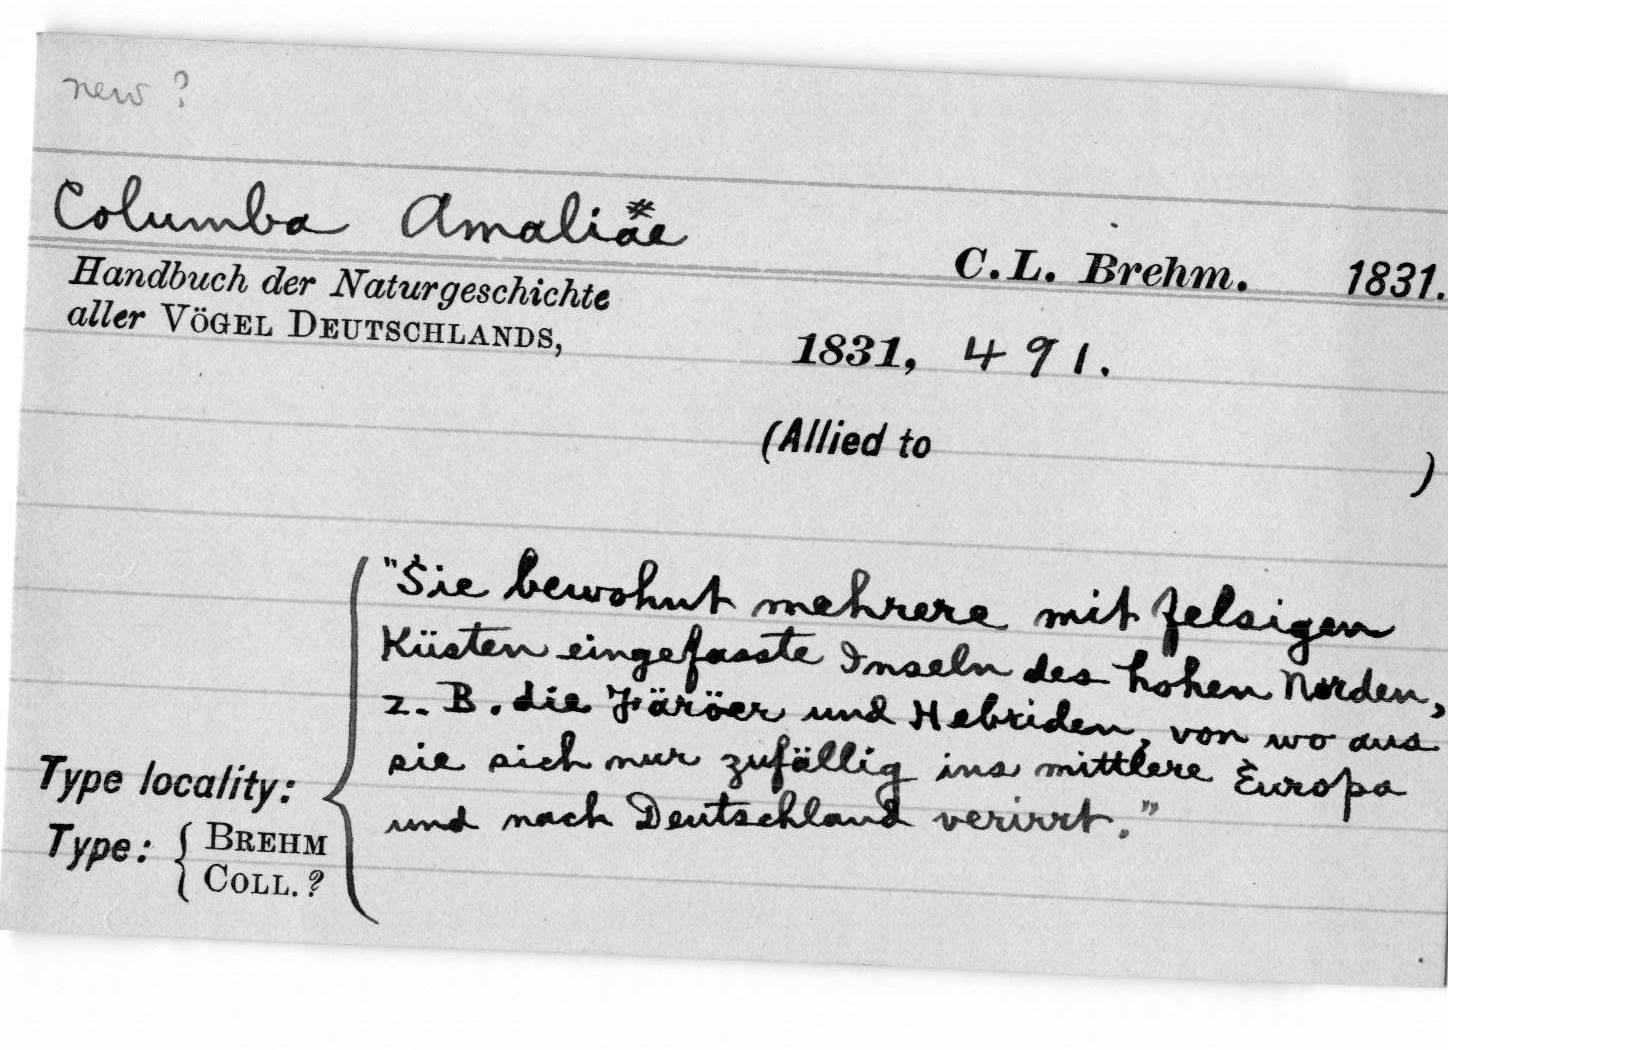 new ?
Columba Amaliæ*
C.L. Brehm. 1831.
Handbuch der Naturgeschichte
aller VÖGEL DEUTSCHLANDS,
1831, 491.
(Allied to )
"Sie bewohnt mehrere mit felsigen
Küsten eingefasste Inseln des hohen Norden,
z. B. die Färöer und Hebriden, von wo aus
sie sich nur zufällig ins mittlere Europa
und nach Deutschland verirrt."
Type locality:
Type: { BREHM
COLL. ?